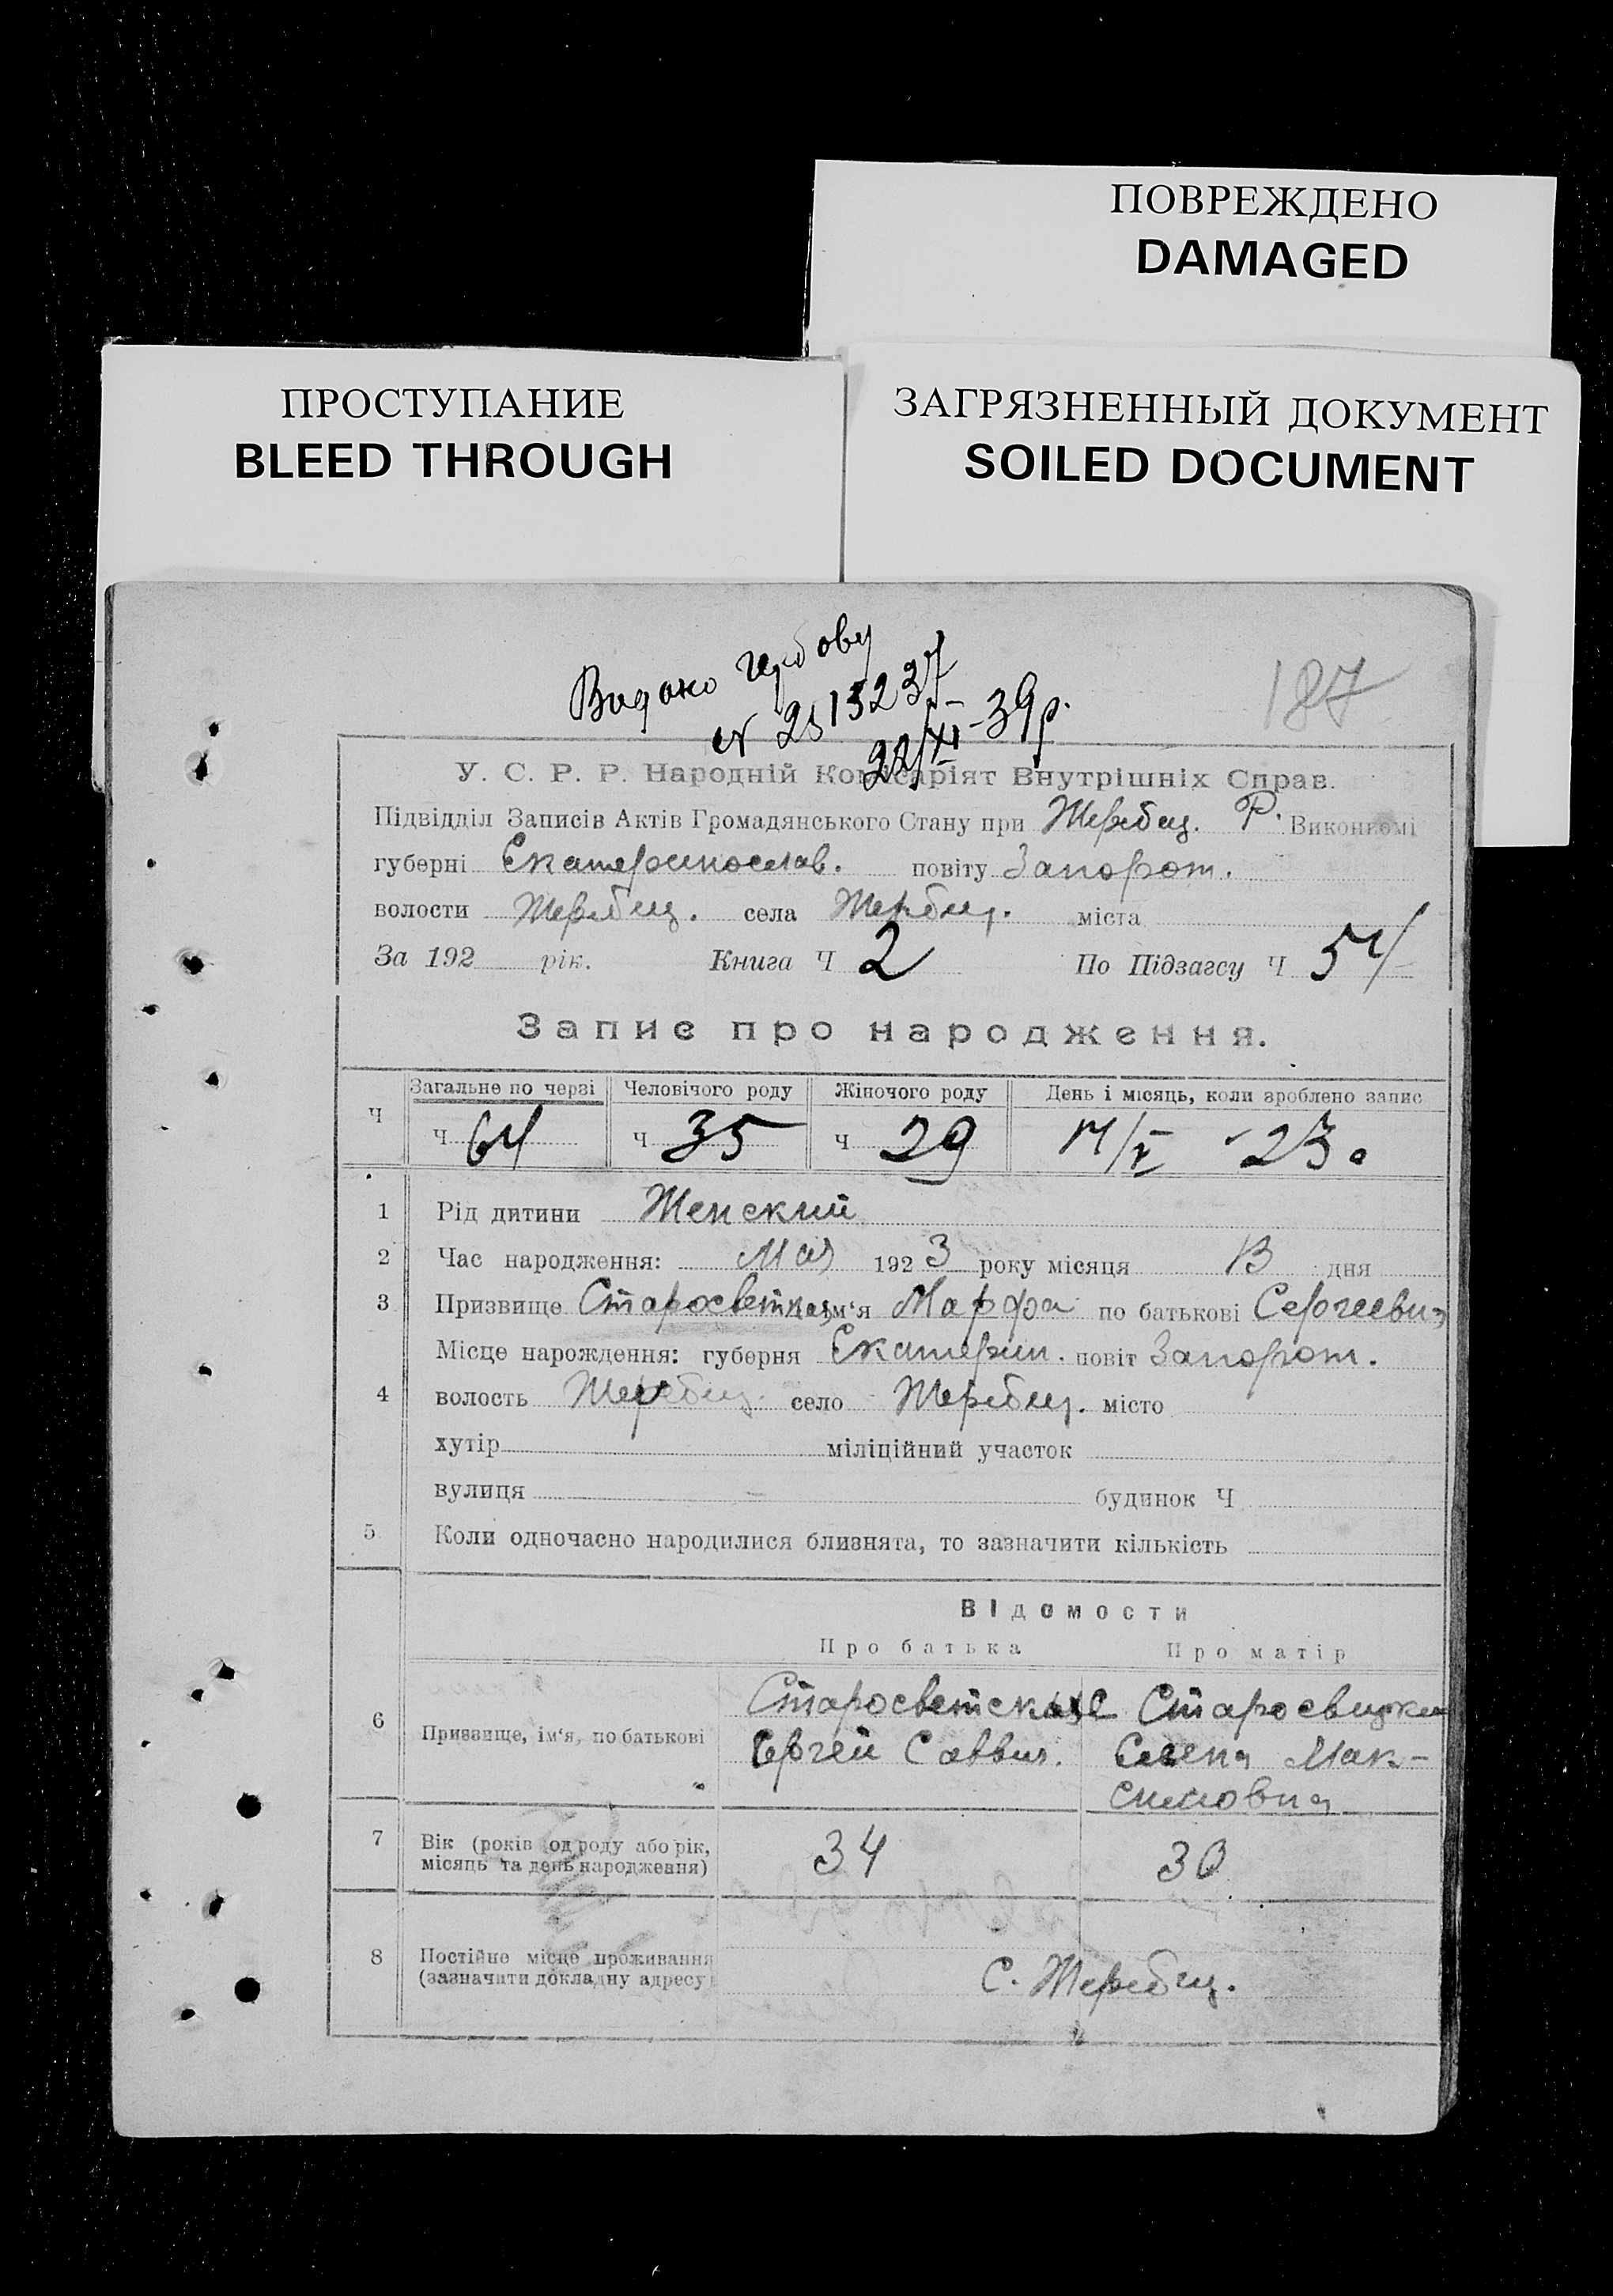 ПОВРЕЖДЕНО
DAMAGED
ПРОСТУПАНИЕ
BLEED THROUGH
ЗАГРЯЗНЕННЫЙ ДОКУМЕНТ
SOILED DOCUMENT
Видано гербову
187
22/XI-39р.
У. С. Р. Р. Народній Комісаріят Внутрішніх Справ.
Підвідділ Записів Актів Громадянського Стану при Жеребец. Р. Виконкомі
губерні Екатеринослав. повіту Запорож.
волости Жеребец. села Жеребец. міста
За 192 рік. Книга Ч 2 По Підзагсу Ч
Запис про народження.
Ч Загальне по черзі Человічого роду Жіночого роду День і місяць, коли зроблено запис
Ч 64 Ч 35 Ч 29
1 Рід дитини Женский
2 Час народження: Мая 1923 року місяця дня
3 Призвище Старосветская ім‘я Марфа по батькові Сергеевна
Місце нарождення: губерня Екатерин. повіт Запорож.
4 волость Жеребец. село Жеребец. місто
хутір міліційний участок
вулиця будинок Ч
5 Коли одночасно народилися близнята, то зазначити кількість
Відомости
Про батька Про матір
6 Призвище, ім‘я, по батькові
Сергей Саввич. Елена Мак-
симовна
7 Вік (років од роду або рік, місяць та день народження) 34 30
8 Постійне місце проживання (зазначити докладну адресу) С. Жеребец.